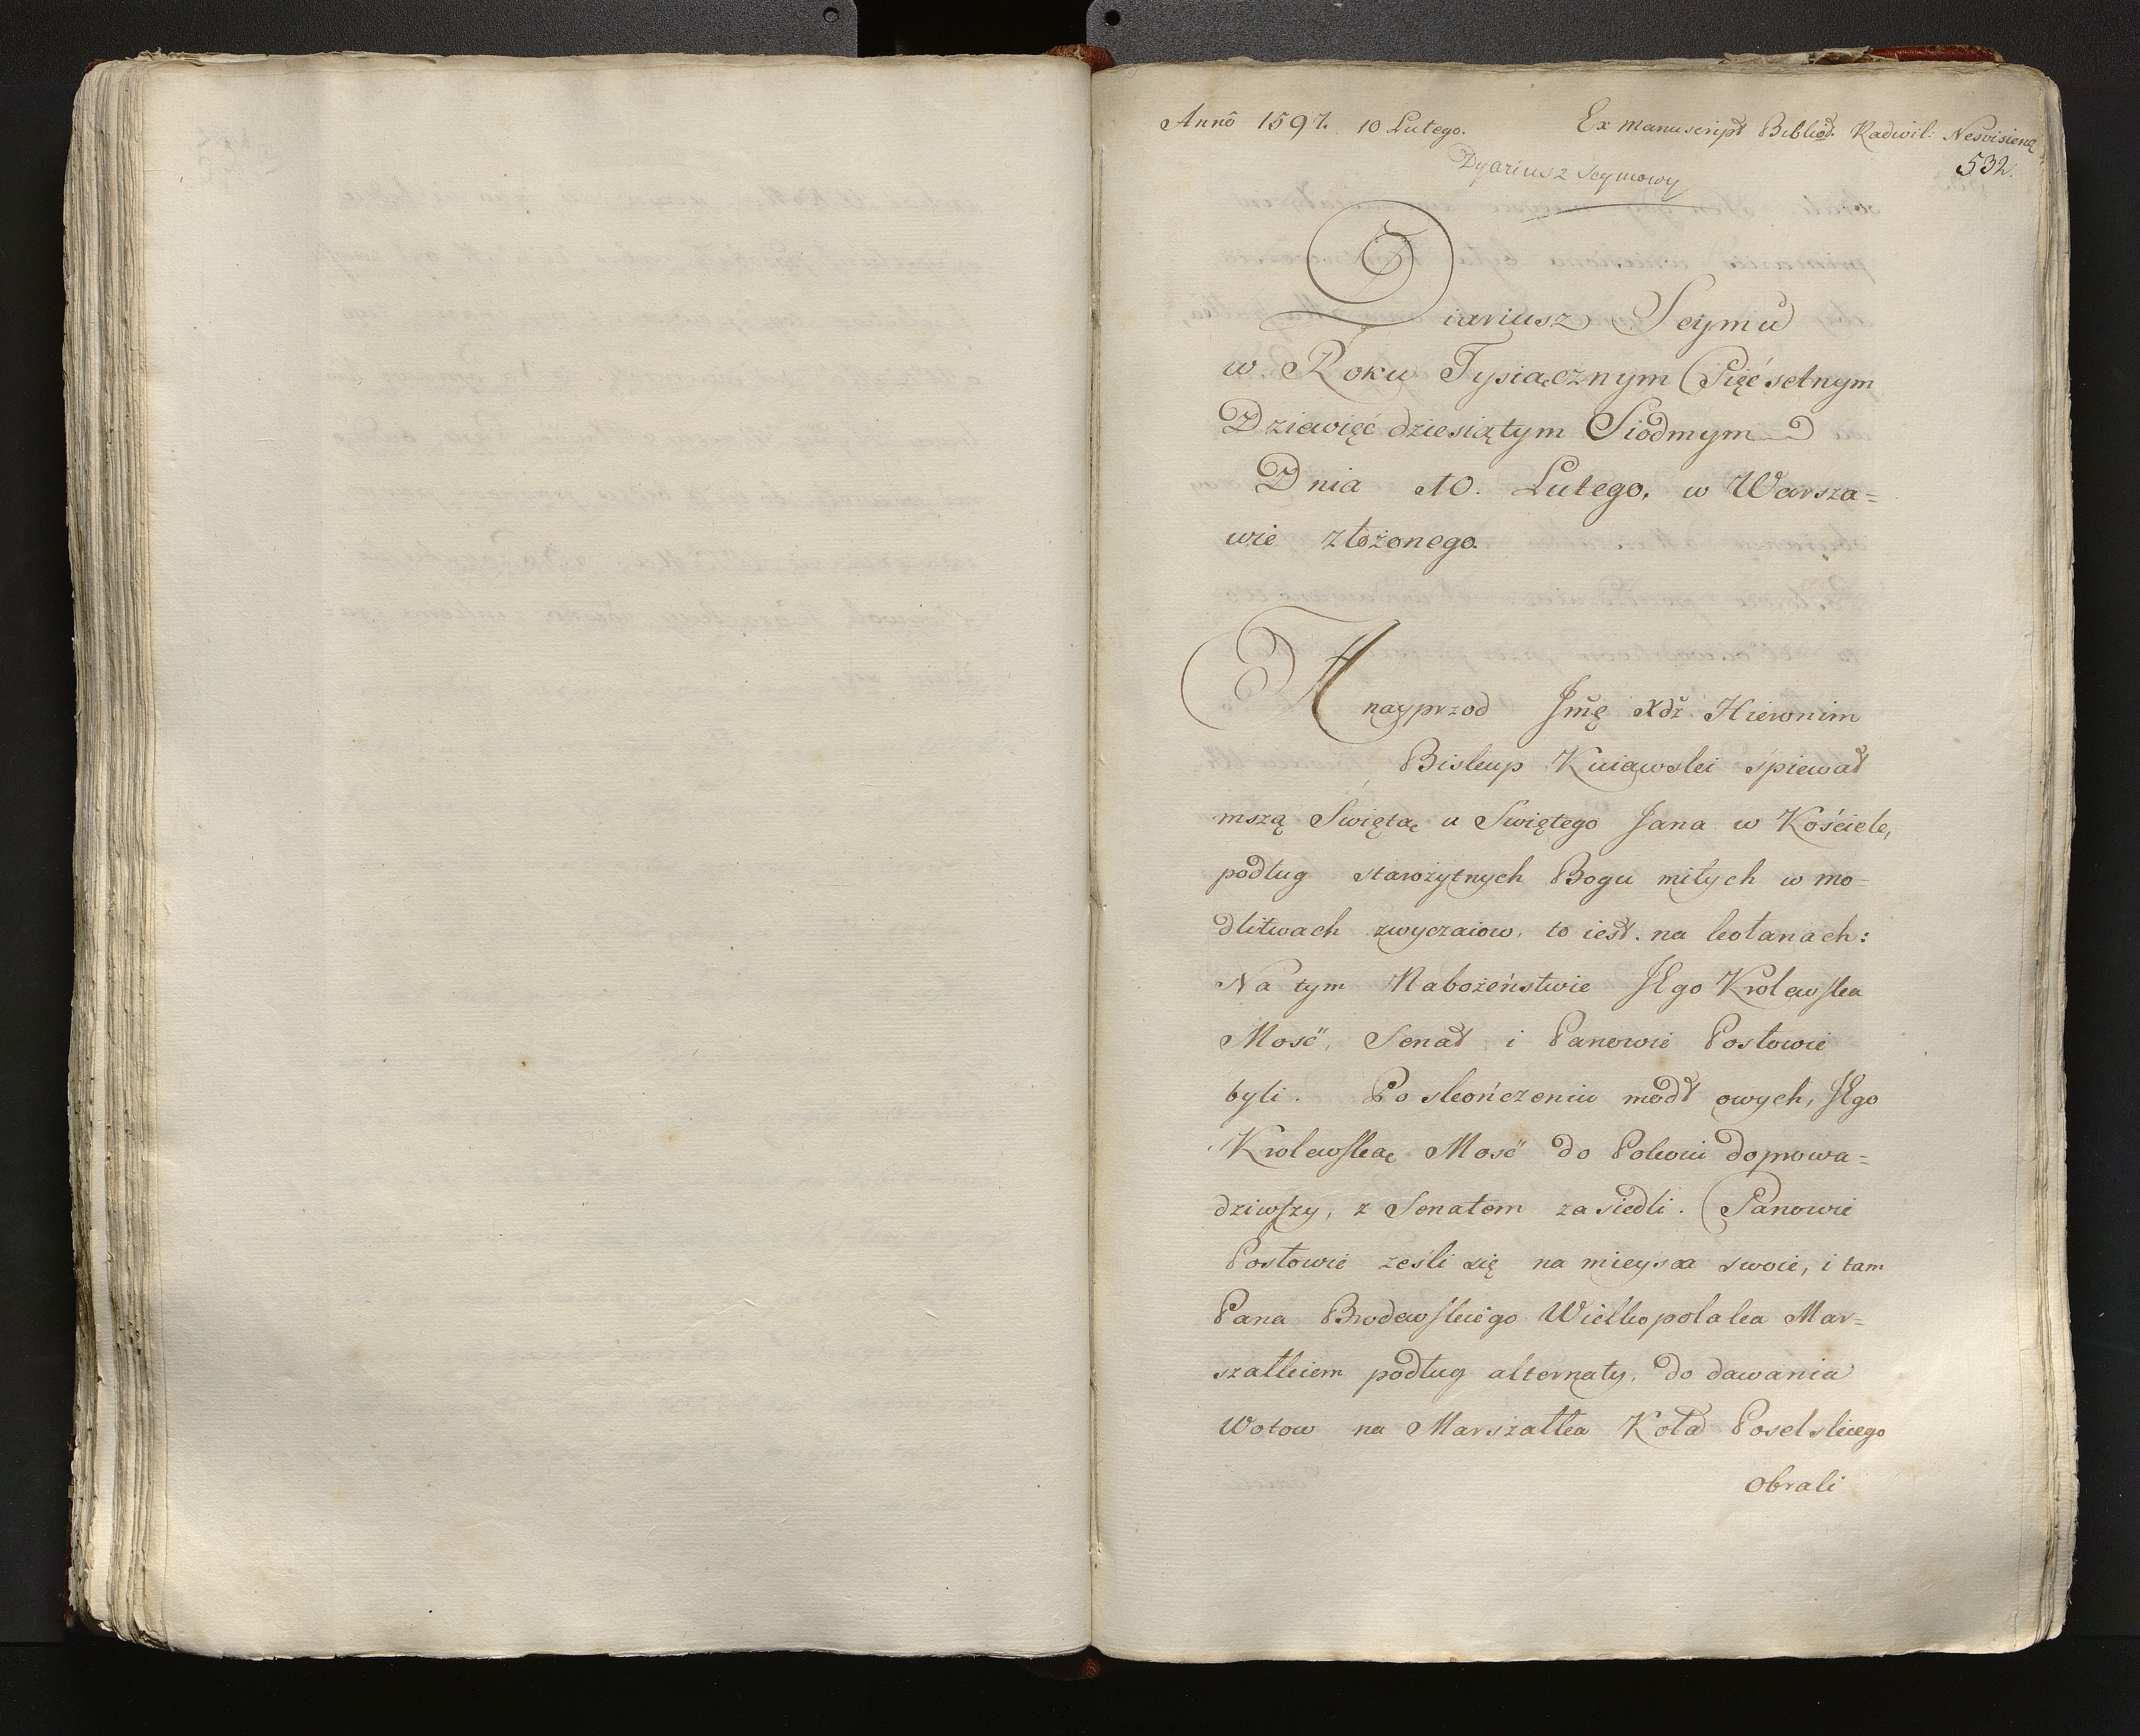 Anno 1597. 10 Lutego. Ex Manuscript Biblioth. Radivil: Nesvisiens
532.
Dyariusz Seymowy
Diariusz Seymu
w Roku Tysiącznym Pięć setnym
Dziewięć dziesiątym Siodmym
Dnia 10. Lutego. w Warsza=
wie złożonego.
A nayprzod Jmę Xdz Hieronim
Biskup Kuiawski śpiewał
mszą Swiętą u Swiętego Jana w Kościele,
podług starożytnych Bogu miłych w mo=
dlitwach zwyczaiow, to iest. na kolanach:
Na tym Nabożeństwie JEgo Krolewska
Mosć, Senat i Panowie Posłowie
byli. Po skończeniu modł owych, JEgo
Krolewską Mosć do Pokoiu doprowa=
dziwszy, z Senatem zasiedli. Panowie
Posłowie ześli się na mieysca swoie, i tam
Pana Brodawskiego Wielkopolaka Mar=
szałkiem podług alternaty, do dawania
Wotow na Marszałka Koła Poselskiego
obrali